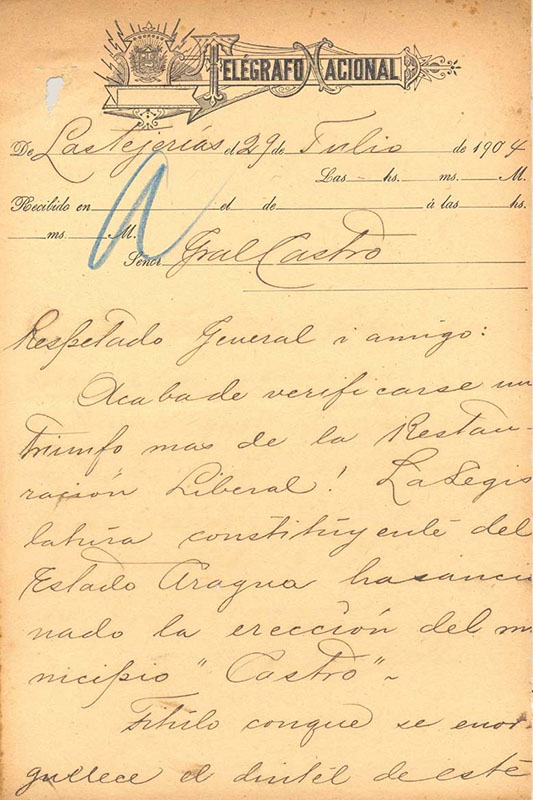 TELÉGRAFO NACIONAL
De Las tejerías el 29 de Julio de 1904
Las hs. ms. M.
Recibido en el de á las hs.
ms. M.
Señor Gral Castro
Respetado General i amigo:
Acaba de verificarse un
triunfo mas de la Restau-
ración Liberal! La Legis
latura constituyente del
Estado Aragua ha sanci
nado la erección del m
nicipio "Castro" ~
Titulo conque se enor
gullece el dintel de este